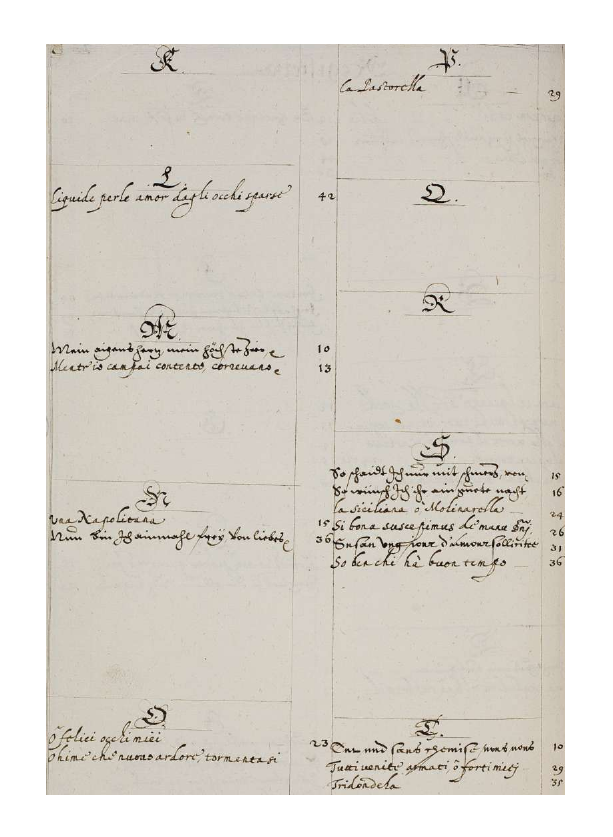 K
L
Liquide perle amor dagli occhi sparse 42
M
Mein aigens hertz, mein höchste 10
Mentr io campai contento, correuano 13
N
Una Napolitana 15
Nun bin Ich ainmahl frey von liebes 36
O
O felici occhi miei 23
Ohime che nuouo ardore, tormentasi
P.
La Pastorella 29
Q.
R
S.
So schaidt Ich mit schmertz, von 15
So wünsch Ich ihr ain guete nacht 16
La Siciliana ò Molinarella 24
Si bona suscepimus de manu Dnj 26
Susan ung jour d'amour sollicitée 31
So ben chi hà buon tempo 36
T.
und sans chemise, 10
Tutti venite armati, ò forti miej 29
Tridondela 35